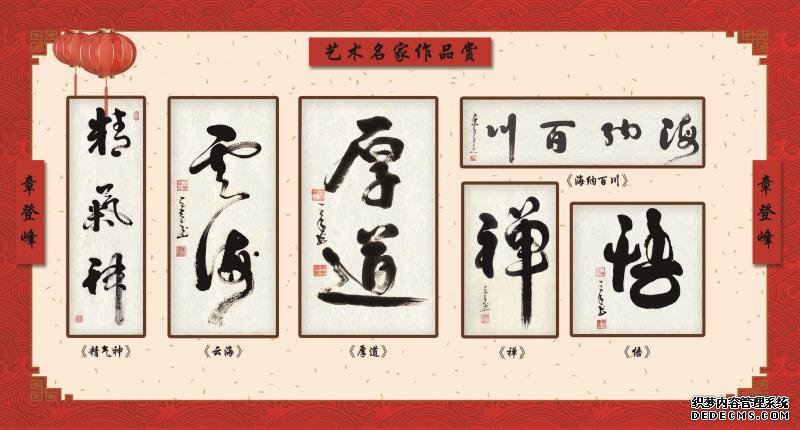 艺术名家作品赏
章登峰
精氣神
《精气神》
雲海
《云海》
厚道
《厚道》
海納百川
《海纳百川》
禅
《禅》
悟
《悟》
章登峰
织梦内容管理系统
DEDECMS.COM